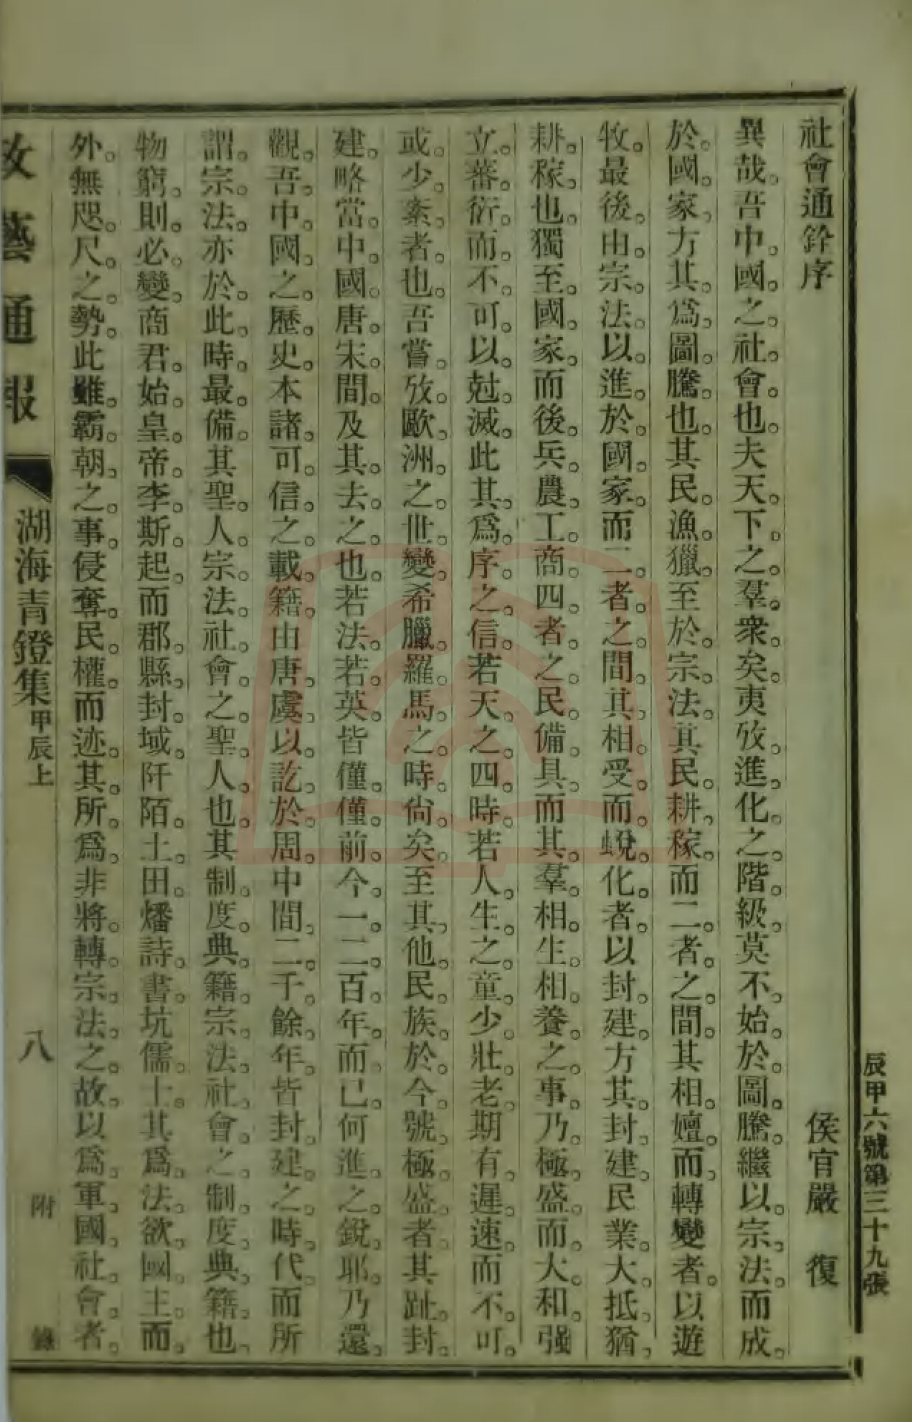 辰甲六號第三十九張
社會通銓序　侯官嚴　復
異哉。吾中國之社會也。夫天下之羣衆矣。夷攷進化之階級。莫不始於圖騰。繼以宗法。而成
於國家。方其爲圖騰也。其民漁獵。至於宗法。其民耕稼。而二者之間。其相嬗而轉變者。以遊
牧。最後由宗法以進於國家。而二者之間。其相受而蛻化者。以封建。方其封建。民業大抵猶
耕稼也。獨至國家。而後兵農工商四者之民備具。而其羣相生相養之事。乃極盛而大和。强
立蕃衍。而不可以尅滅。此其爲序之信。若天之四時。若人生之童少壯老。期有遲速。而不可
或少紊者也。吾嘗攷歐洲之世變。希臘羅馬之時尙矣。至其他民族。於今號極盛者。其趾封
建。略當中國唐宋間。及其去之也。若法若英。皆僅僅前今一二百年而已。何進之銳耶。乃還
觀吾中國之歷史。本諸可信之載籍。由唐虞以訖於周。中間二千餘年。皆封建之時代。而所
謂宗法亦於此時最備。其聖人宗法社會之聖人也。其制度典籍宗法社會之制度典籍也。
物窮則必變。商君始皇帝李斯起。而郡縣封域。阡陌土田。燔詩書。坑儒士。其爲法欲國主而
外。無咫尺之勢。此雖霸朝之事。侵奪民權。而迹其所爲。非將轉宗法之故。以爲軍國社會者。
政藝通報
湖海青鐙集甲辰上
八
附
錄